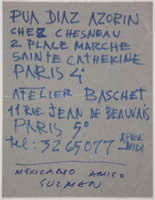 PUA DIAZ AZORIN
CHEZ CHESNEAU
2 PLACE MARCHE
SAINTE CATHERINE
PARIS 4e
ATELIER BASCHET
11 RUE JEAN DE BEAUVAIS
PARIS 5e
tel: 3265077 APRE MIDI
MEXICANO AMIGO
GUZMAN